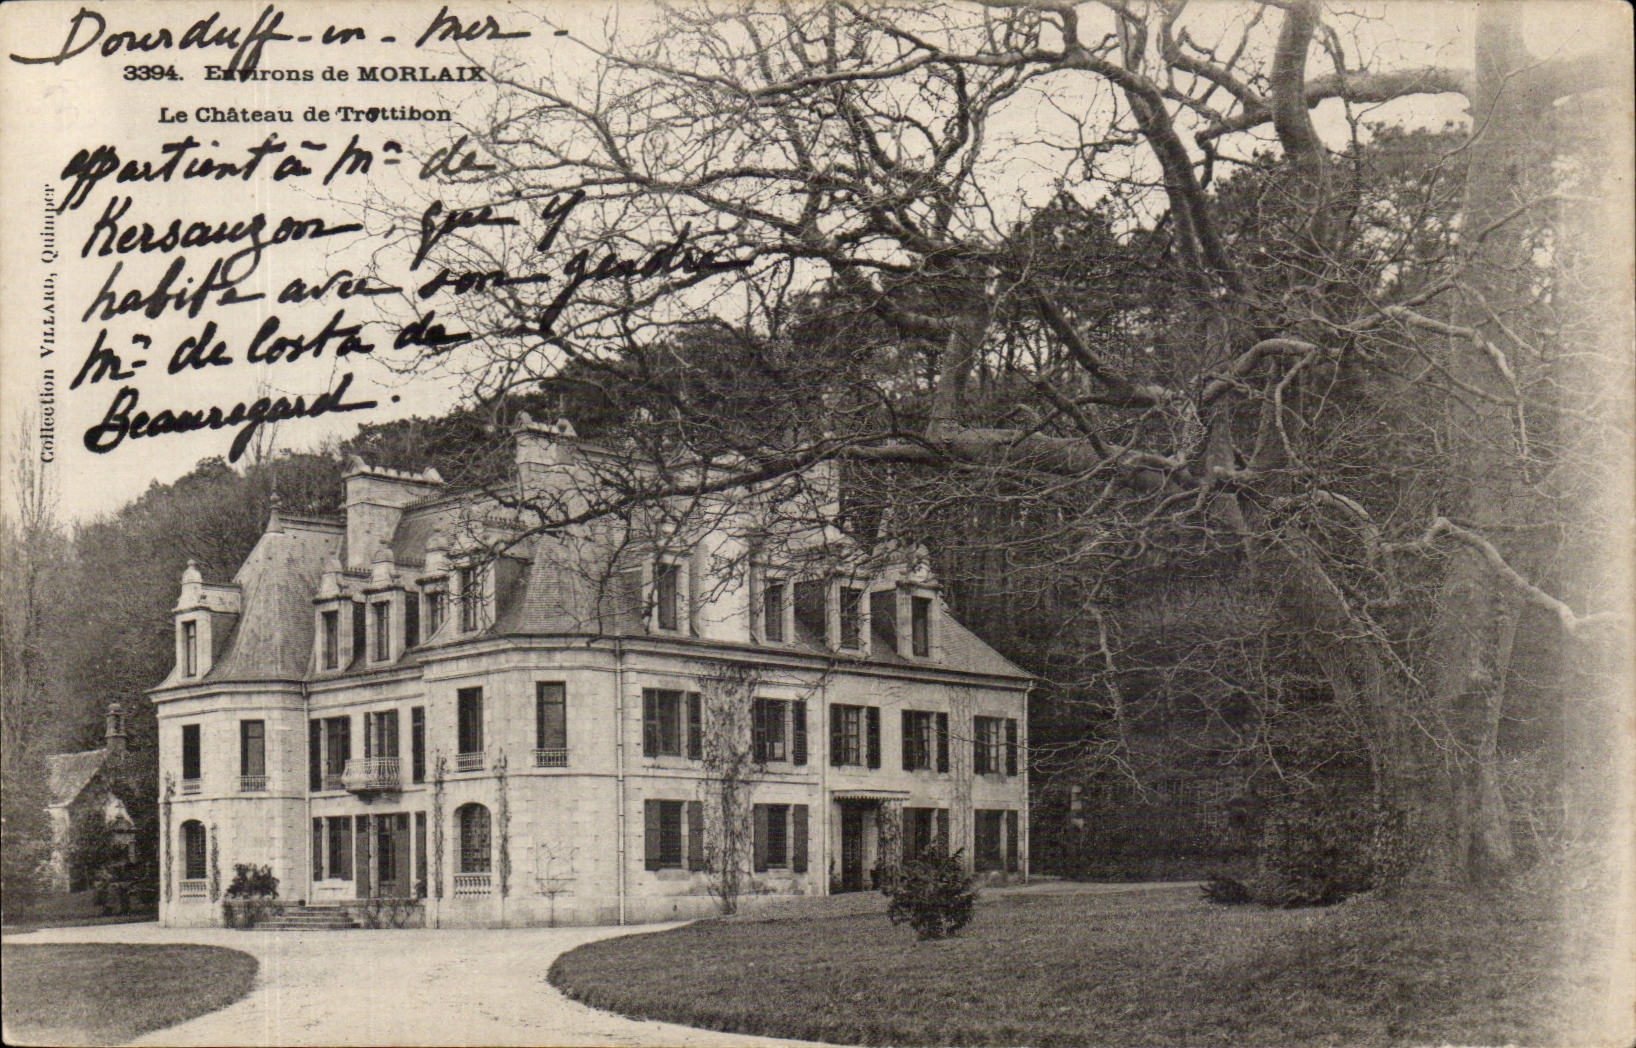 Dourduff-en-Mer-
3394. Environs de MORLAIX
Le Château de Trottibon
appartient à Mr de
Kersauzon, que y
habite avec son gendre
Mr de Costa de
Beauregard.
Collection VILLARD, Quimper